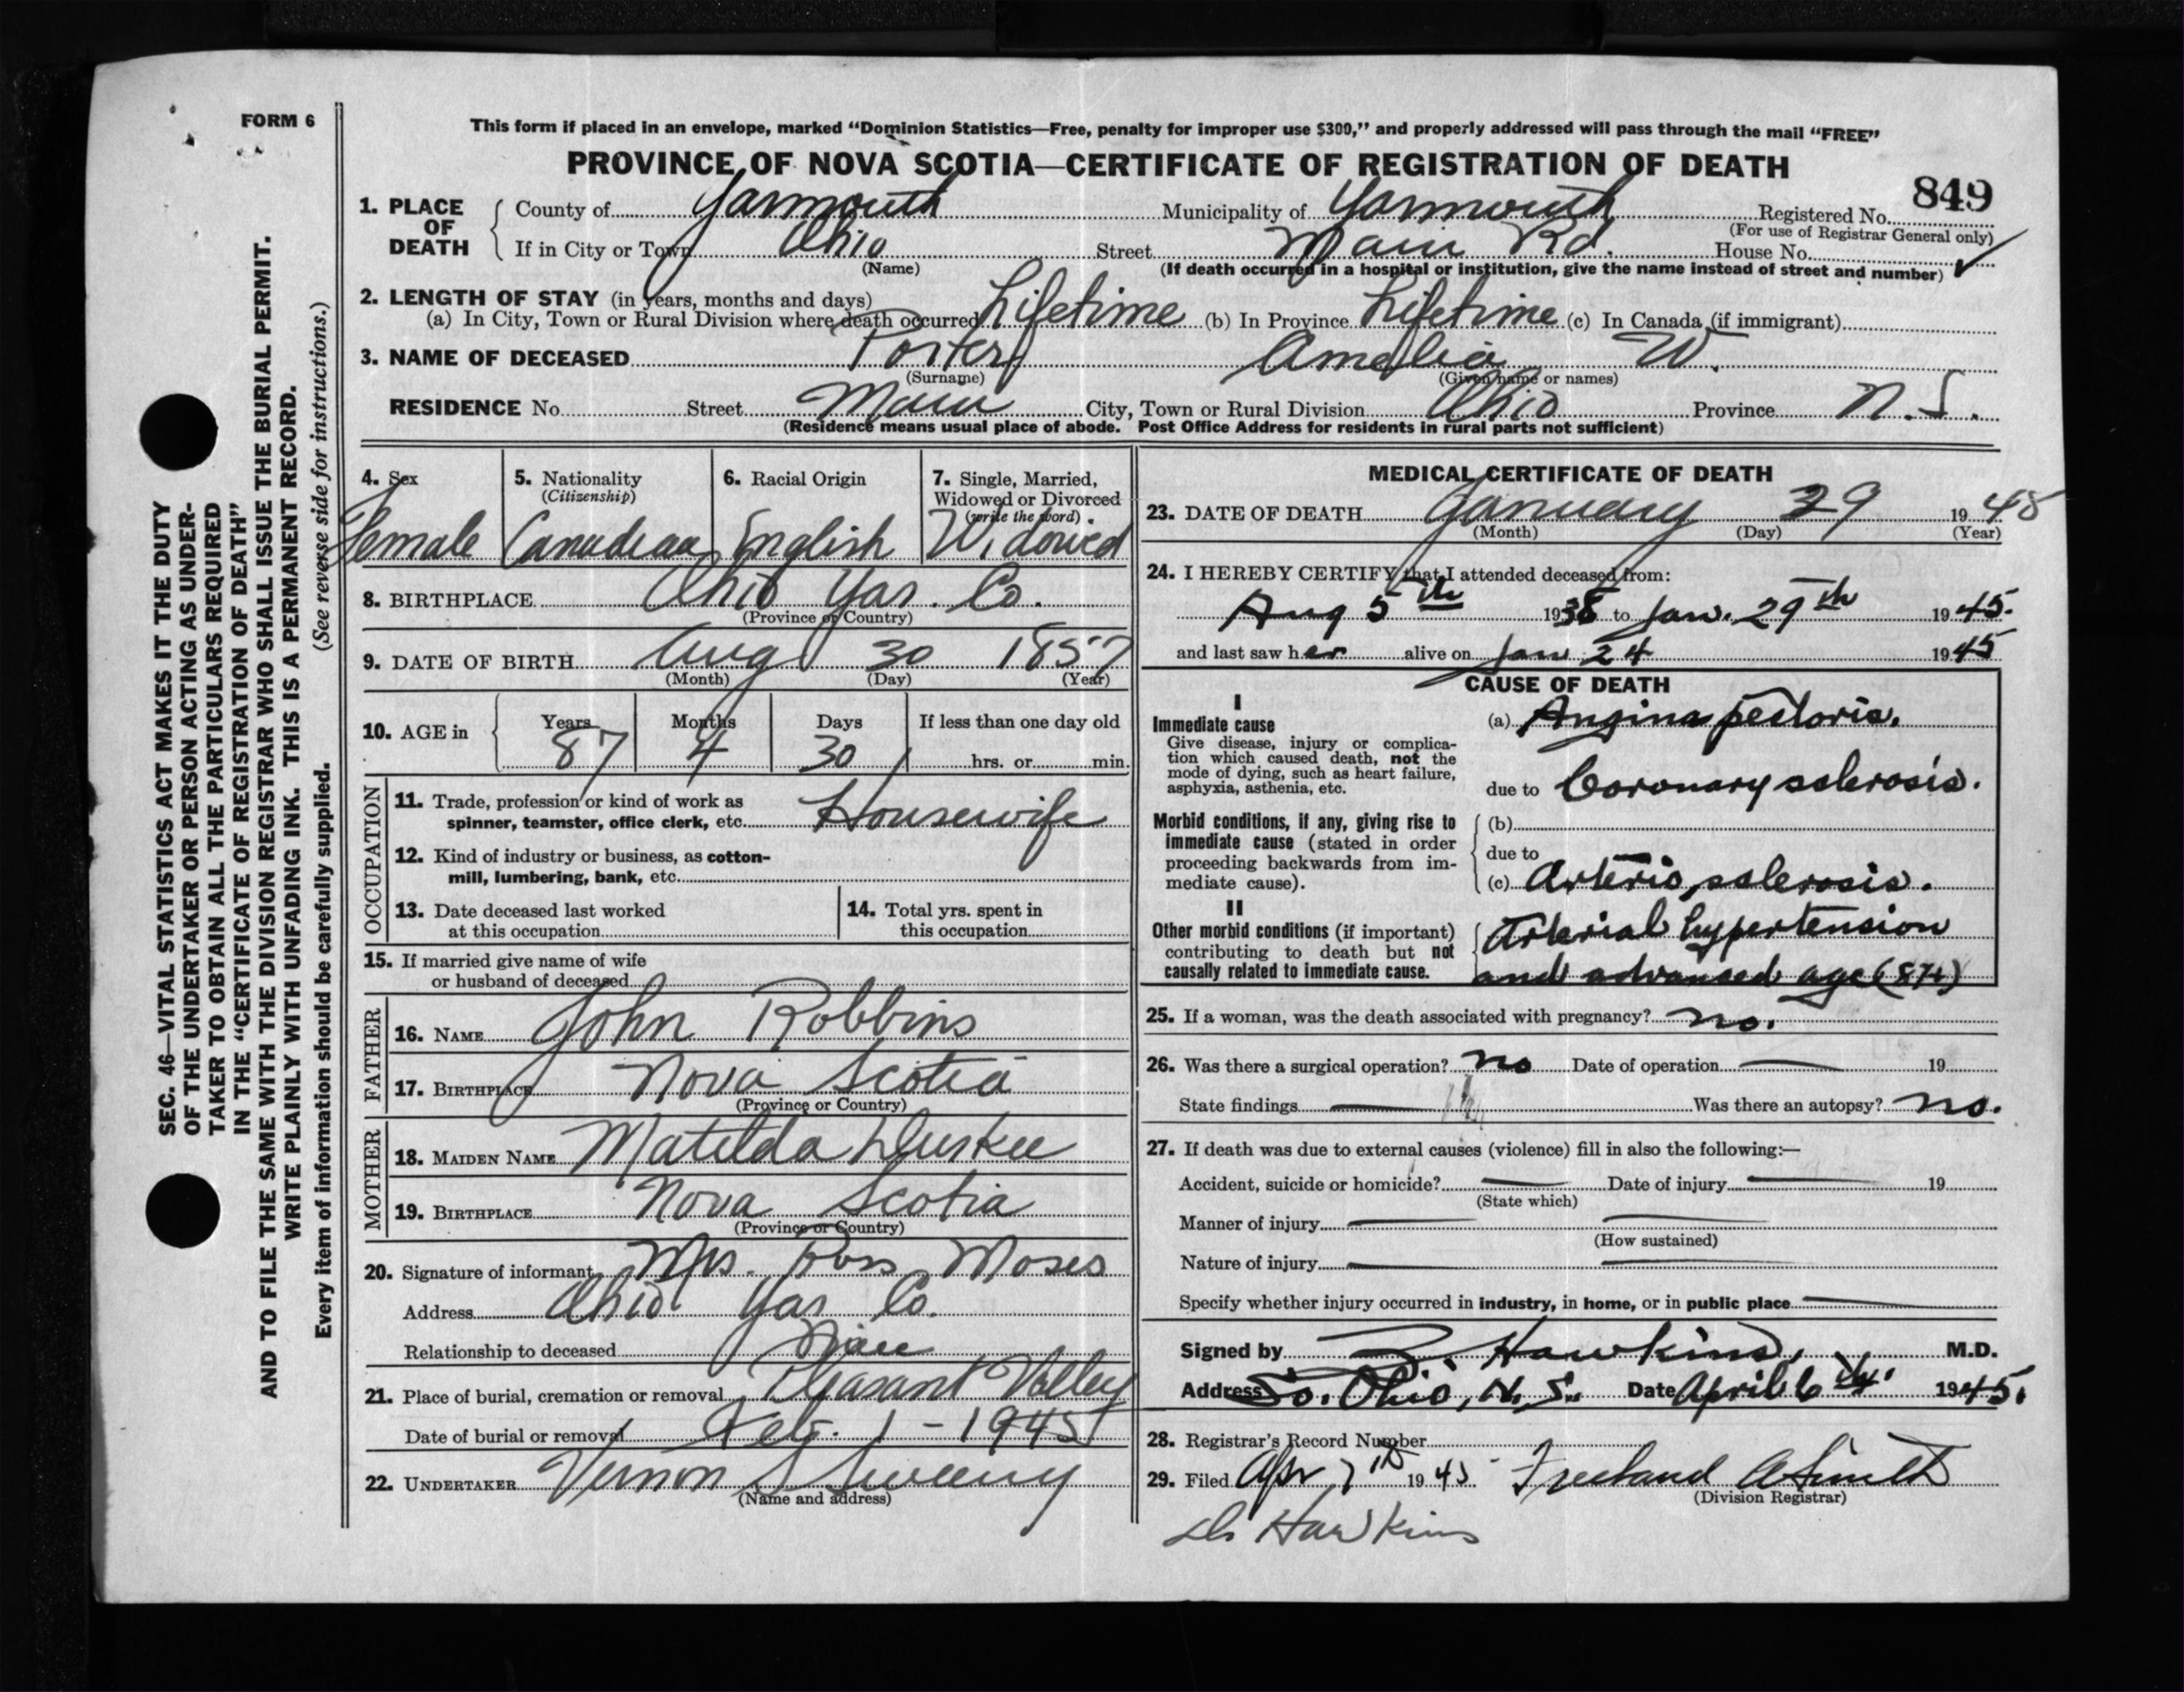 FORM 6
This form if placed in an envelope, marked "Dominion Statistics—Free, penalty for improper use $300," and properly addressed will pass through the mail "FREE"
PROVINCE OF NOVA SCOTIA—CERTIFICATE OF REGISTRATION OF DEATH
849
1. PLACE OF DEATH County of Yarmouth Municipality of Yarmouth Registered No.
(For use of Registrar General only)
If in City or Town Ohio Street Main Rd. House No.
(Name) (If death occurred in a hospital or institution, give the name instead of street and number) ✓
2. LENGTH OF STAY (in years, months and days)
(a) In City, Town or Rural Division where death occurred Lifetime (b) In Province Lifetime (c) In Canada (if immigrant)
3. NAME OF DECEASED Porter Amelia W.
(Surname) (Given name or names)
RESIDENCE No. Street Main City, Town or Rural Division Ohio Province N.S.
(Residence means usual place of abode. Post Office Address for residents in rural parts not sufficient)
4. Sex 5. Nationality (Citizenship) 6. Racial Origin 7. Single, Married, Widowed or Divorced (write the word)
Female Canadian English Widowed
8. BIRTHPLACE Ohio Yar. Co.
(Province or Country)
9. DATE OF BIRTH Aug 30 1857
(Month) (Day) (Year)
10. AGE in Years Months Days If less than one day old
87 4 30 hrs. or min.
OCCUPATION
11. Trade, profession or kind of work as
spinner, teamster, office clerk, etc. Housewife
12. Kind of industry or business, as cotton-
mill, lumbering, bank, etc.
13. Date deceased last worked
at this occupation
14. Total yrs. spent in
this occupation
15. If married give name of wife
or husband of deceased
FATHER
16. NAME John Robbins
17. BIRTHPLACE Nova Scotia
(Province or Country)
MOTHER
18. MAIDEN NAME Matilda Durkee
19. BIRTHPLACE Nova Scotia
(Province or Country)
20. Signature of informant Mrs. Ross Moses
Address Ohio Yar Co.
Relationship to deceased Niece
21. Place of burial, cremation or removal Pleasant Valley
Date of burial or removal Feb. 1 - 1945
22. UNDERTAKER Vernon S Sweeny
(Name and address)
MEDICAL CERTIFICATE OF DEATH
23. DATE OF DEATH January 29 1945
(Month) (Day) (Year)
24. I HEREBY CERTIFY that I attended deceased from:
Aug 5th 1938 to Jan. 29th 1945.
and last saw her alive on Jan 24 1945
CAUSE OF DEATH
I
Immediate cause
Give disease, injury or complica-
tion which caused death, not the
mode of dying, such as heart failure,
asphyxia, asthenia, etc.
(a) Angina pectoris.
due to Coronary sclerosis.
Morbid conditions, if any, giving rise to
immediate cause (stated in order
proceeding backwards from im-
mediate cause).
(b)
due to
(c) Arterio sclerosis.
II
Other morbid conditions (if important)
contributing to death but not
causally related to immediate cause.
Arterial hypertension
and advanced age (87)
25. If a woman, was the death associated with pregnancy? no.
26. Was there a surgical operation? no Date of operation — 19
State findings — Was there an autopsy? no.
27. If death was due to external causes (violence) fill in also the following:—
Accident, suicide or homicide? — Date of injury — 19
(State which)
Manner of injury —
(How sustained)
Nature of injury —
Specify whether injury occurred in industry, in home, or in public place —
Signed by Hawkins, M.D.
Address So. Ohio, N.S. Date April 6th 1945.
28. Registrar's Record Number
29. Filed Apr 7th 1945 Freeland A Smith
(Division Registrar)
Dr Hawkins
SEC. 46—VITAL STATISTICS ACT MAKES IT THE DUTY
OF THE UNDERTAKER OR PERSON ACTING AS UNDER-
TAKER TO OBTAIN ALL THE PARTICULARS REQUIRED
IN THE "CERTIFICATE OF REGISTRATION OF DEATH"
AND TO FILE THE SAME WITH THE DIVISION REGISTRAR WHO SHALL ISSUE THE BURIAL PERMIT.
WRITE PLAINLY WITH UNFADING INK. THIS IS A PERMANENT RECORD.
Every item of information should be carefully supplied. (See reverse side for instructions.)